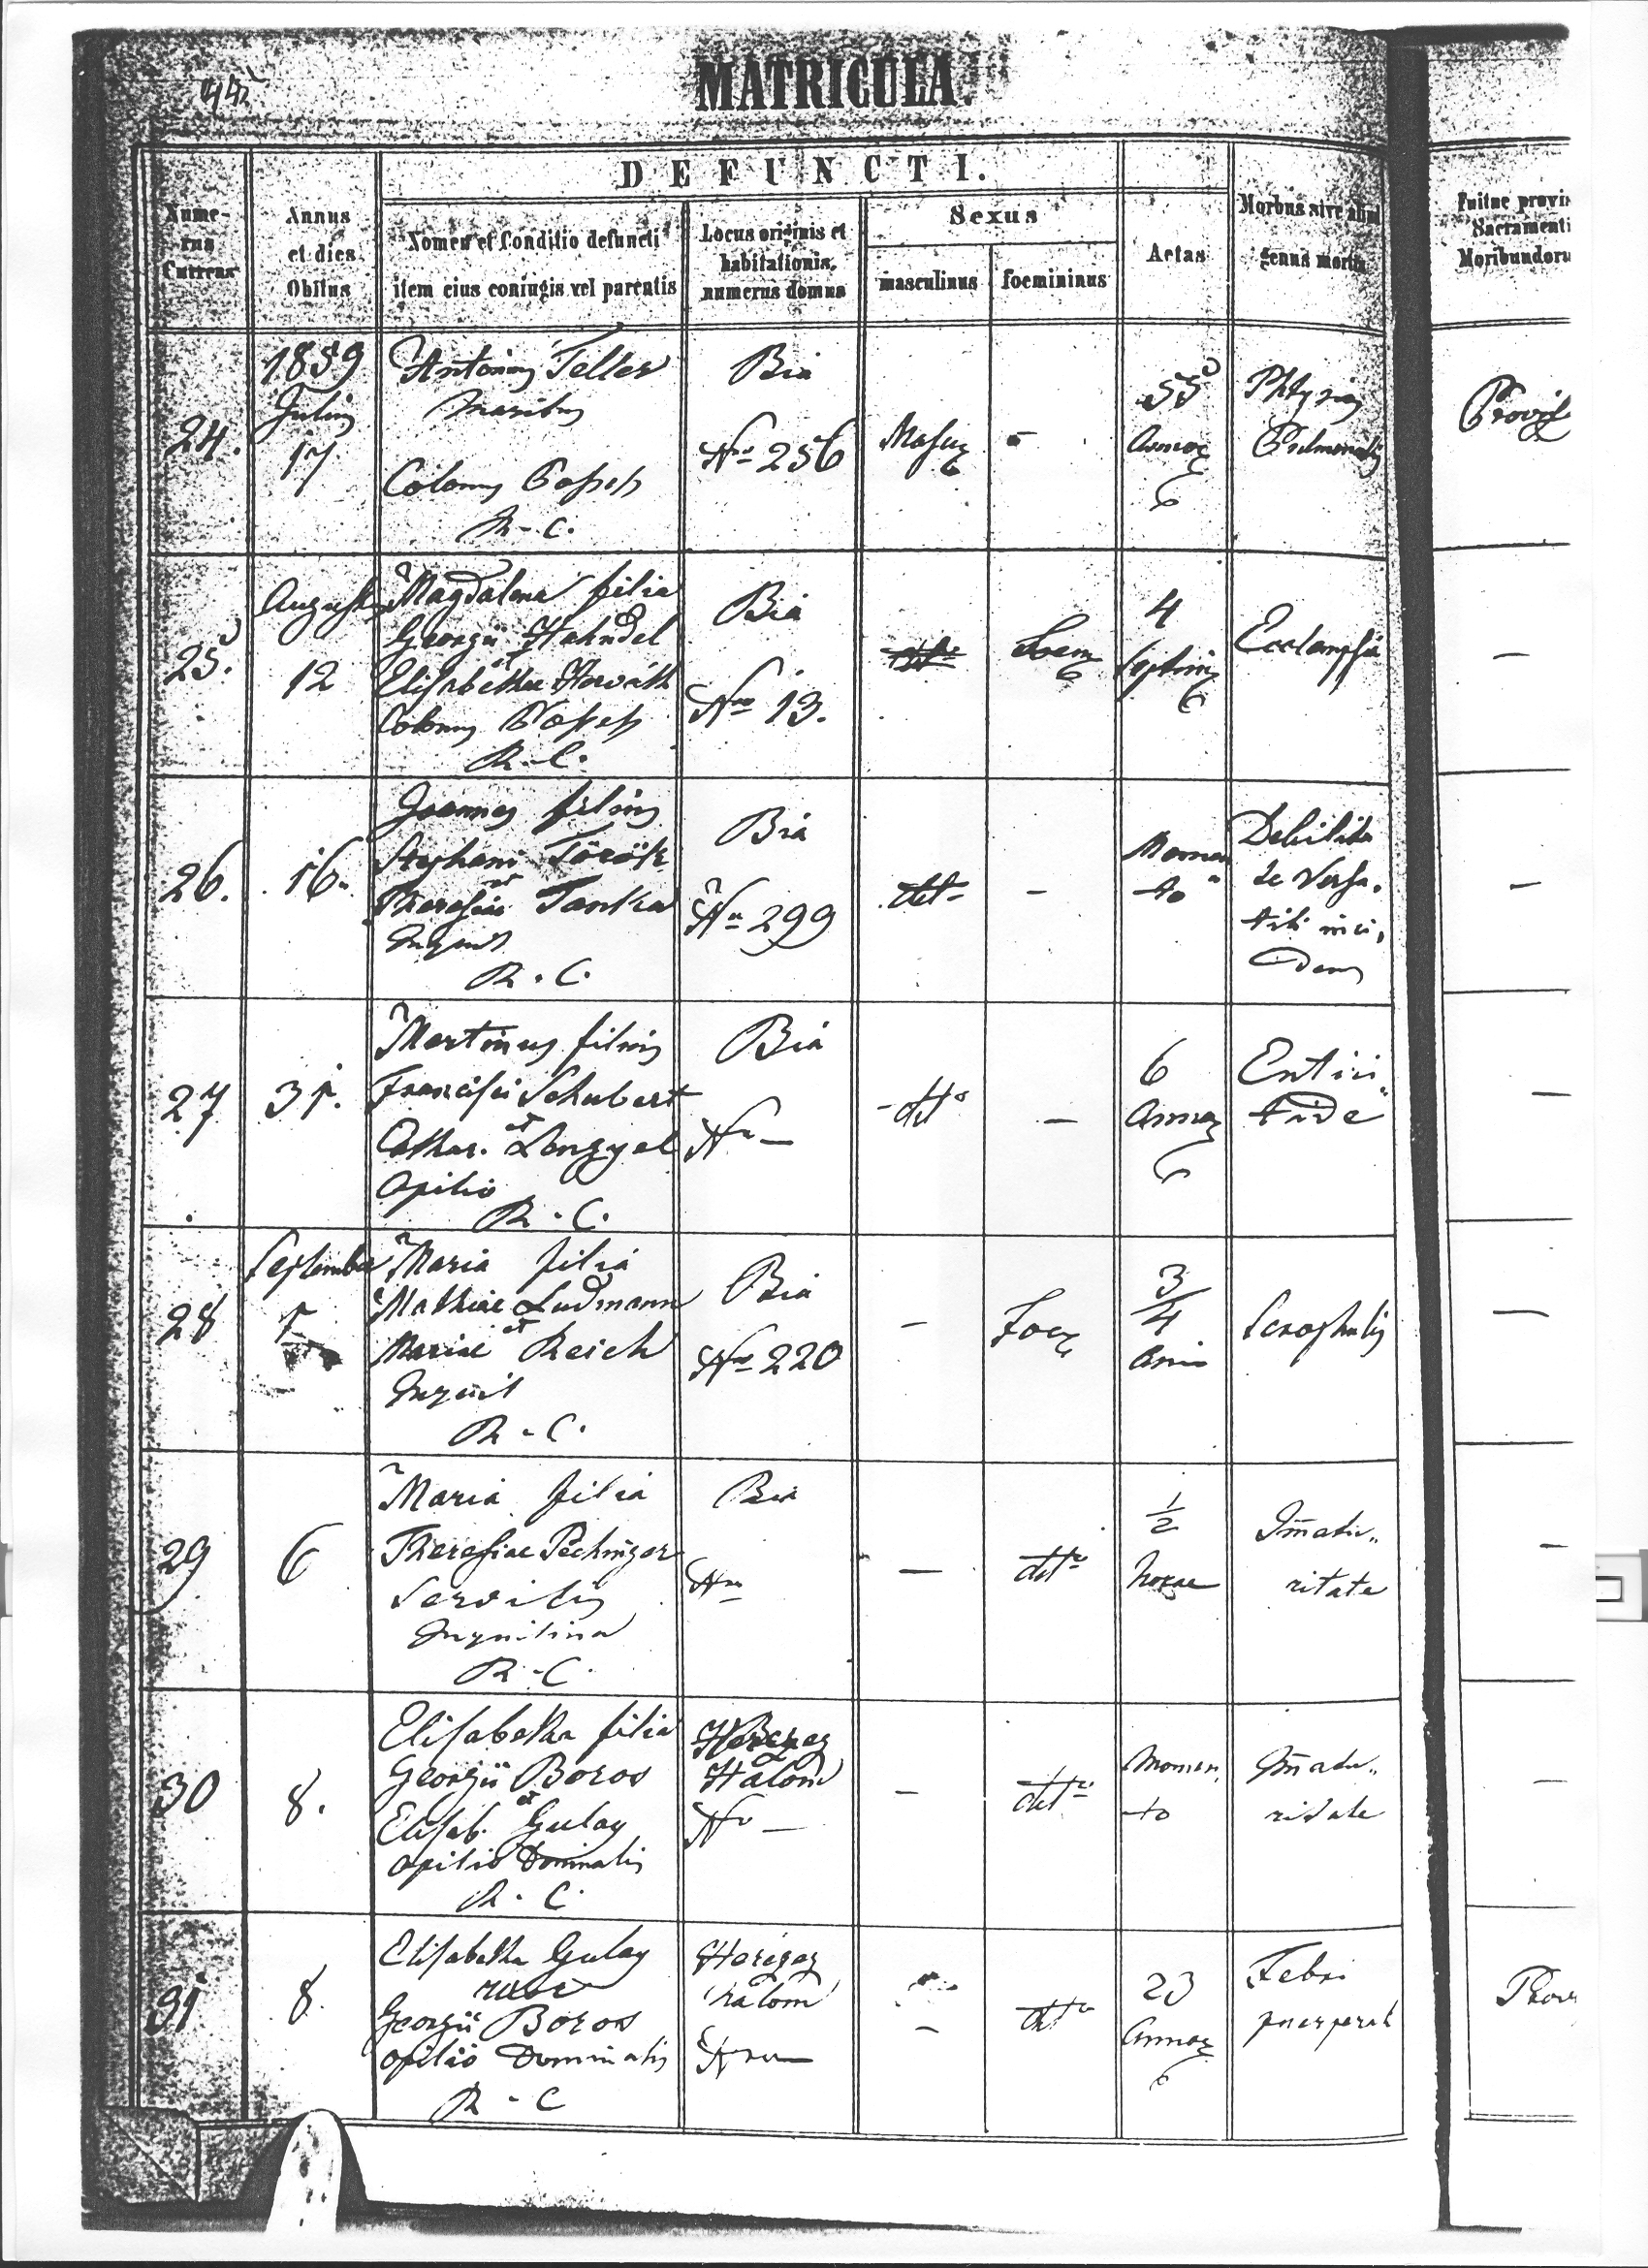 MATRICULA.
DEFUNCTI.
Numerus Currens
Annus et dies Obitus
Nomen et Conditio defuncti item eius coniugis vel parentis
Locus originis et habitationis, numerus domus
Sexus
masculinus
foemininus
Aetas
Morbus sive aliud genus mortis
Fuitne provi
Sacramenti
Moribundoru
24.
1859
Julius
17
Antonius Teller
maritus
Colonus
R. C.
Bia
Nro 256
Mascu
-
55
Annor
Phtysis
Pulmonalis
25.
Augustus
12
Magdalena filia
Georgii Hahndel
et
Elisabethae Horváth
Colonus
R. C.
Bia
Nro 13.
Foem
4
septim
Ecclampsia
—
26.
16.
Joannes filius
Stephani Török
et
Theresiae Tanka
Inquil
R. C.
Bia
Nro 299
detto
-
Momen
to
Debilita
te
—
27
31.
Martinus filius
Francisci Schubert
et
Cathar. Lengyel
Opilio
R. C.
Bia
Nro —
detto
—
6
Annor
—
28
September
Maria filia
Mathiae Ludmann
et
Mariae Reich
Inquil
R. C.
Bia
Nro 220
—
Foem
3/4
Ani
Scrophulis
—
29
6
Maria filia
Theresiae Pechinger
Servilis
Inquilina
R. C.
Bia
Nro
—
detto
1/2
horae
Imatu
ritate
—
30
8.
Elisabetha filia
Georgii Boros
et
Elisab. Gulay
Opilio Dominalis
R. C.
Herczeg
Halom
Nro —
—
detto
Momen
to
Imatu
ritate
—
31
8.
Elisabetha Gulay
uxor
Georgii Boros
opilio Dominalis
R. C
Herczeg
halom
Nro —
—
detto
23
Annor
Febri
puerperali
Prov